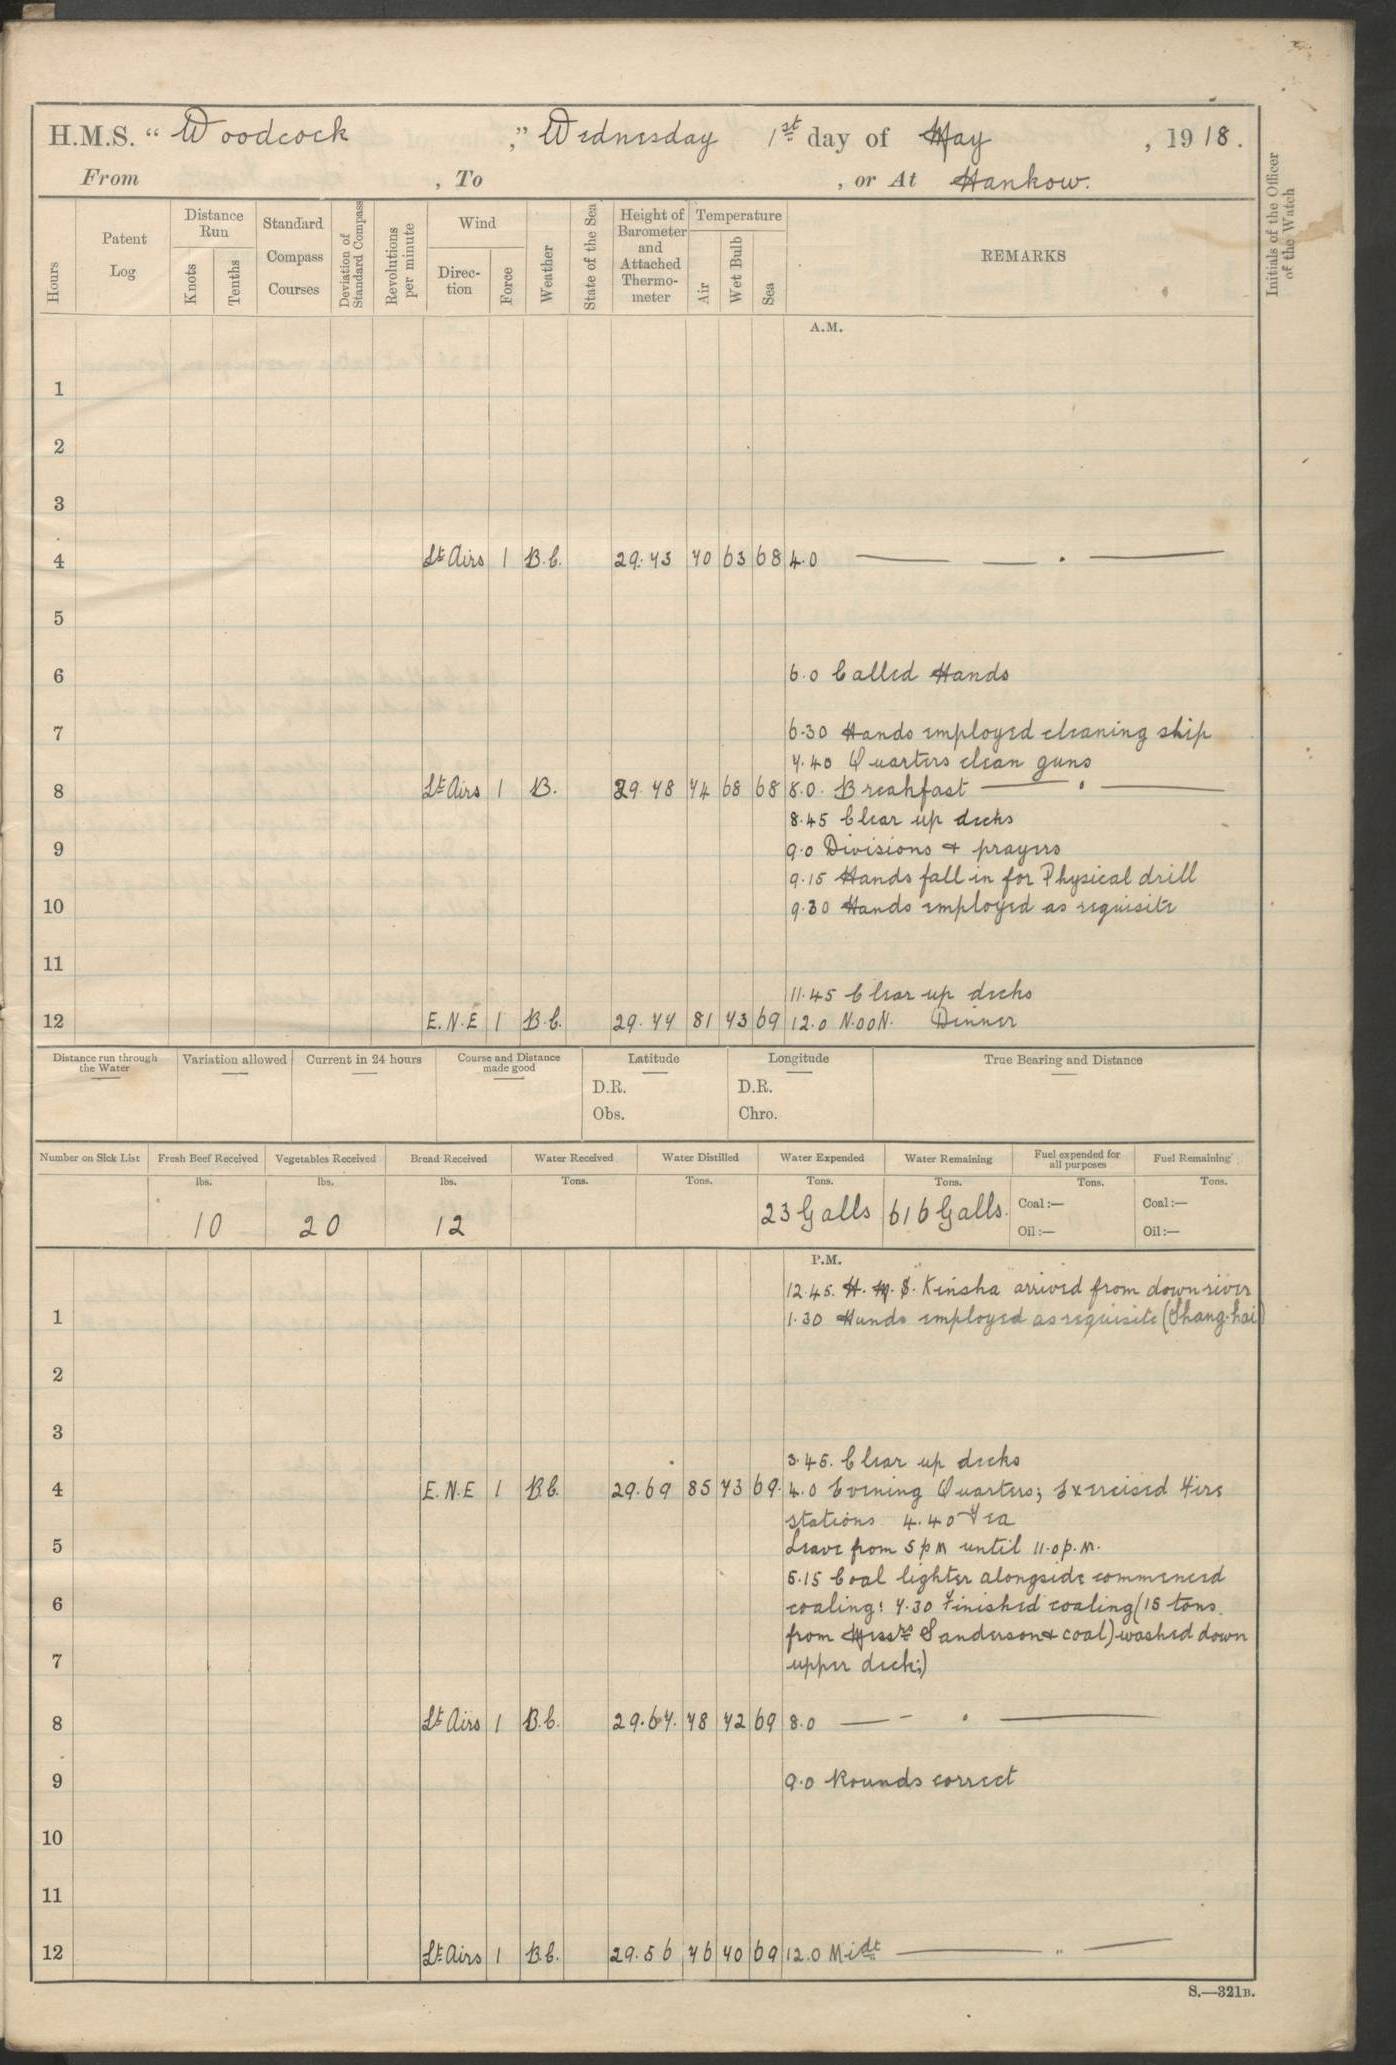 H.M.S. “ Woodcock ,” Wednesday 1st day of May , 1918.
From , To , or At Hankow.
Hours
Patent Log
Distance Run
Knots
Tenths
Standard Compass Courses
Deviation of Standard Compass
Revolutions per minute
Wind
Direc-tion
Force
Weather
State of the Sea
Height of Barometer and Attached Thermo-meter
Temperature
Air
Wet Bulb
Sea
REMARKS
Initials of the Officer of the Watch
A.M.
1
2
3
4 Lt Airs 1 B.C. 29.73 70 63 68 4.0
5
6 6.0 Called Hands
7 6.30 Hands employed cleaning ship
7.40 Quarters clean guns
8 Lt Airs 1 B. 29.78 74 68 68 8.0. Breakfast
8.45 Clear up decks
9 9.0 Divisions + prayers
9.15 Hands fall in for Physical drill
10 9.30 Hands employed as requisite
11
11.45 Clear up decks
12 E.N.E 1 B.C. 29.77 81 73 69 12.0 NOON. Dinner
Distance run through the Water
Variation allowed
Current in 24 hours
Course and Distance made good
Latitude
D.R.
Obs.
Longitude
D.R.
Chro.
True Bearing and Distance
Number on Sick List
Fresh Beef Received lbs. 10
Vegetables Received lbs. 20
Bread Received lbs. 12
Water Received Tons.
Water Distilled Tons.
Water Expended Tons. 23 Galls
Water Remaining Tons. 616 Galls.
Fuel expended for all purposes Tons.
Coal:—
Oil:—
Fuel Remaining Tons.
Coal:—
Oil:—
P.M.
12.45. H.M.S. Kinsha arrived from down river
1 1.30 Hands employed as requisite (Shang-hai)
2
3
3.45. Clear up decks
4 E.N.E 1 B.C. 29.69 85 73 69. 4.0 Evening Quarters; Exercised Fire
stations 4.40 Tea
5 Leave from 5 pm until 11.0 p.m.
5.15 Coal lighter alongside commenced
6 coaling: 7.30 Finished coaling (15 tons
from Messrs Sanderson + coal) washed down
7 upper deck;)
8 Lt Airs 1 B.C. 29.67. 78 72 69 8.0
9 9.0 Rounds correct
10
11
12 Lt Airs 1 B.C. 29.56 76 70 69 12.0 Midt
S.—321B.